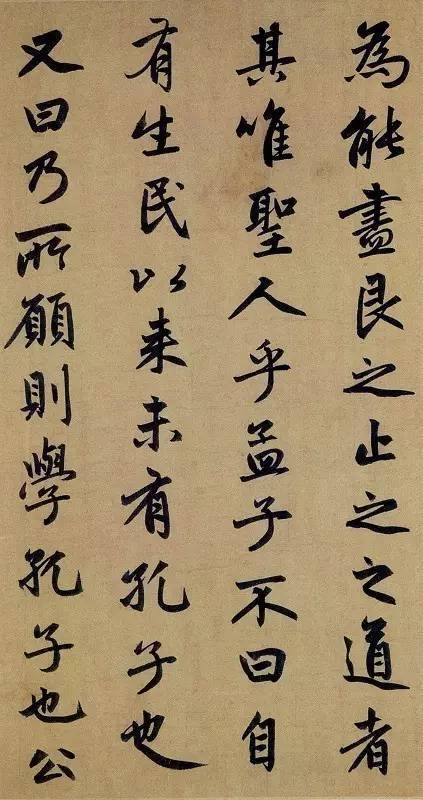 為能盡艮之止之之道者
其唯聖人乎孟子不曰自
有生民以来未有孔子也
又曰乃所願則學孔子也公